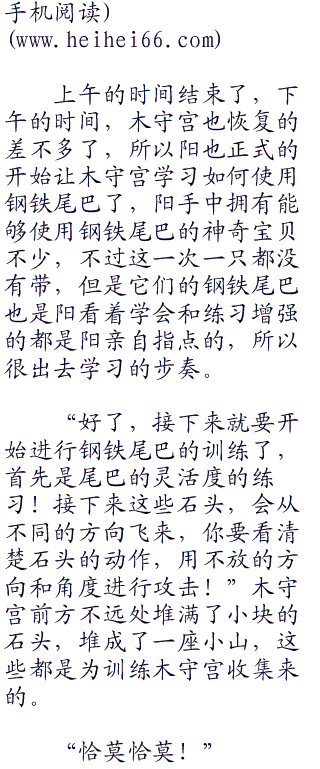 手机阅读)
(www.heihei66.com)
上午的时间结束了，下
午的时间，木守宫也恢复的
差不多了，所以阳也正式的
开始让木守宫学习如何使用
钢铁尾巴了，阳手中拥有能
够使用钢铁尾巴的神奇宝贝
不少，不过这一次一只都没
有带，但是它们的钢铁尾巴
也是阳看着学会和练习增强
的都是阳亲自指点的，所以
很出去学习的步奏。
“好了，接下来就要开
始进行钢铁尾巴的训练了，
首先是尾巴的灵活度的练
习！接下来这些石头，会从
不同的方向飞来，你要看清
楚石头的动作，用不放的方
向和角度进行攻击！”木守
宫前方不远处堆满了小块的
石头，堆成了一座小山，这
些都是为训练木守宫收集来
的。
“恰莫恰莫！”